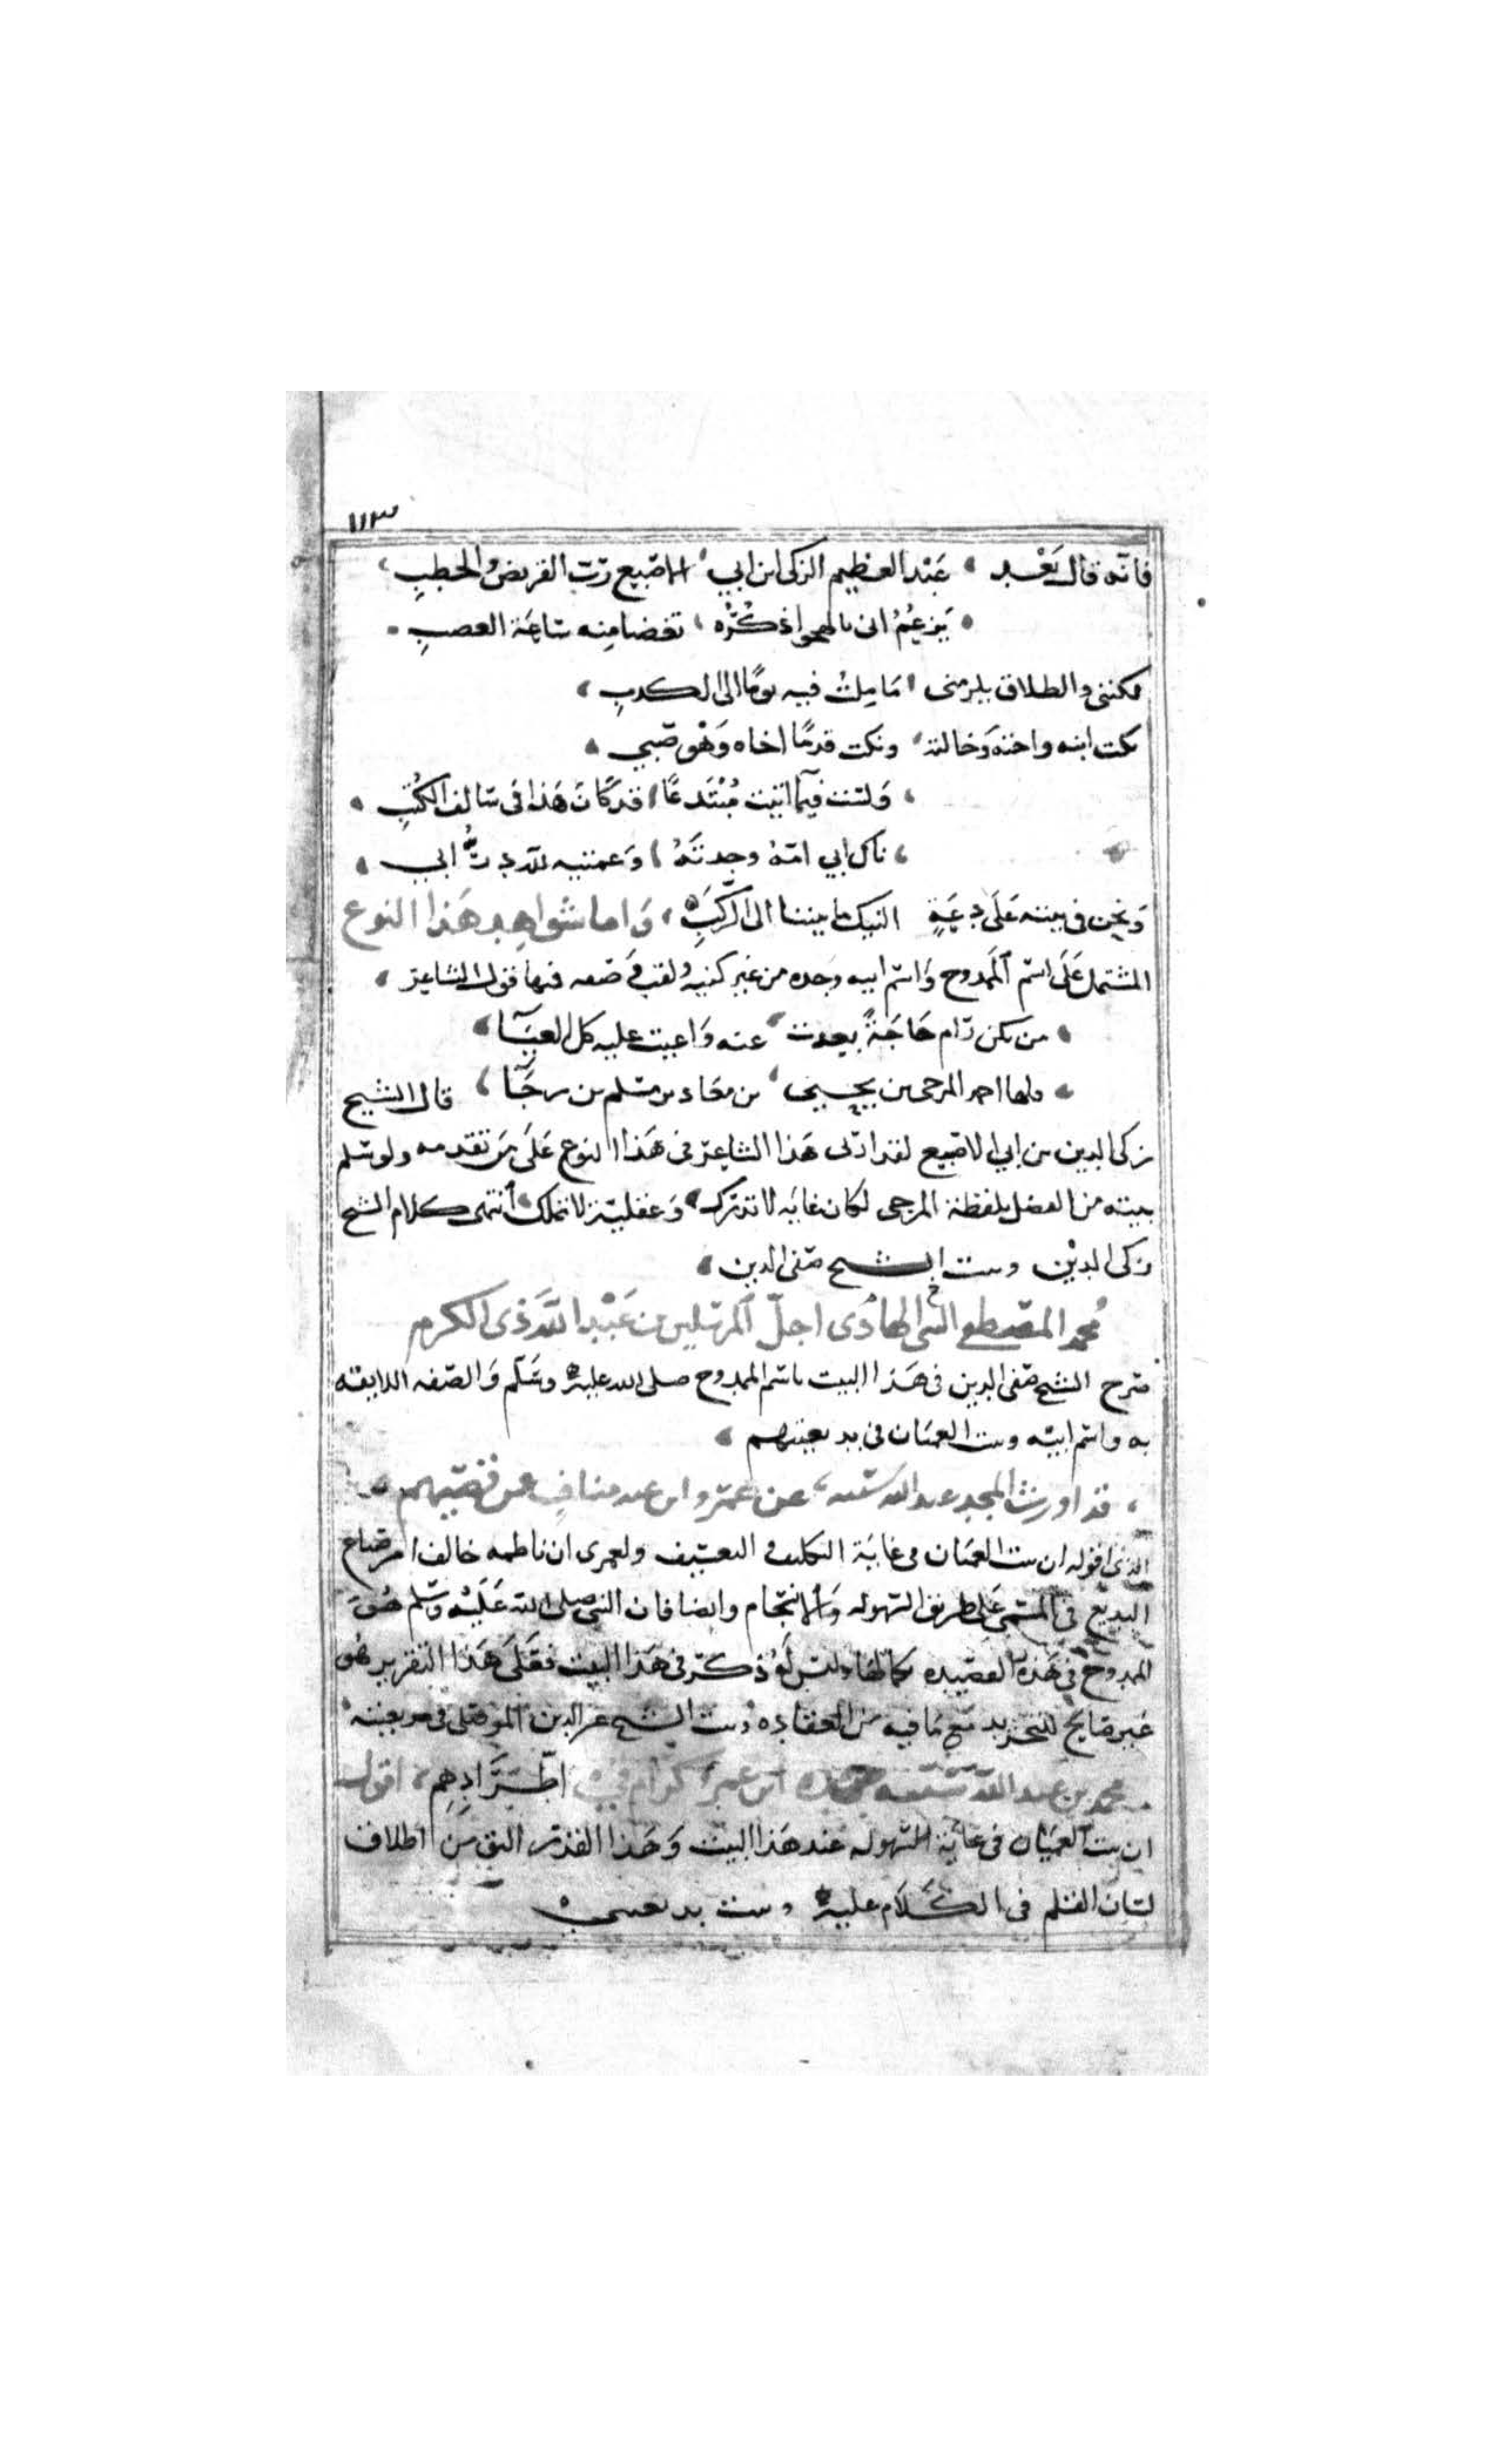 ١١٣
فانه قال بعد عبد العظيم الزكي ابن ابي الاصبيع رب القريض والخطب
يزعم انى بالهجو اذكره تغضبا منه ساعة الغضب
مكننى والطلاق يلزمنى ما ملت فيه يوما الى الكدب
نكت ابنه واخته وخالته ونكت قدما اخاه وهو صبي
ولست فيما اتيت مبتدعا قد كان هذا فى سالف الكتب
ناك ابي امه وجدته وعمتيه لله در ابي
ونحن فى بيته على دعة النيك ما بيننا الى الركب واما شواهد هذا النوع
المشتمل على اسم الممدوح واسم ابيه وجده من غير كنية ولقب فى فمنها قول الشاعر
من يكن رام حاجة بعدت عنه واعيت عليه كل العيآ
فلها احمد المرجى بن يحيى بن معاذ بن مسلم بن رجآ قال الشيخ
زكى الدين بن ابي الاصبيع لقد اربى هذا الشاعر فى هذا النوع على من تقدمه ولو سلم
بيته من الفصل بلفظة المرجى لكان غاية لا تدرك وعقلية لا تملك انتهى كلام الشيخ
زكى الدين وبيت الشيخ صفى الدين
محمد المصطفى الهادى اجل المرسلين بن عبد الله ذى الكرم
صرح الشيخ صفى الدين فى هذا البيت باسم الممدوح صلى الله عليه وسلم والصفه اللايقه
به واسم ابيه وبيت العميان فى بديعيتهم
قد اورث المجد عبد الله شيبة عن عمرو ابن عبد مناف عن قصيهم
الذى اقوله ان بيت العميان فى غاية التكليف و التعسيف ولعمرى ان ناظمه خالف امر صناع
البديع فى المشى على طريق السهوله والانسجام وايضا فان النبى صلى الله عليه وسلم هو
الممدوح فى هذه القصيده بكمالها وليس له ذكر فى هذا البيت فعلى هذا التقرير هو
غير صالح للتجريد مع ما فيه من العقاده وبيت الشيخ عز الدين الموصلى فى بديعيته
محمد بن عبد الله شيبة ابن عمرو كرام فى اطرادهم اقول
ان بيت العميان فى غاية السهوله عند هذا البيت وهذا القدر اليق من اطلاق
لسان القلم فى الكلام عليه وبيت بديعيتى